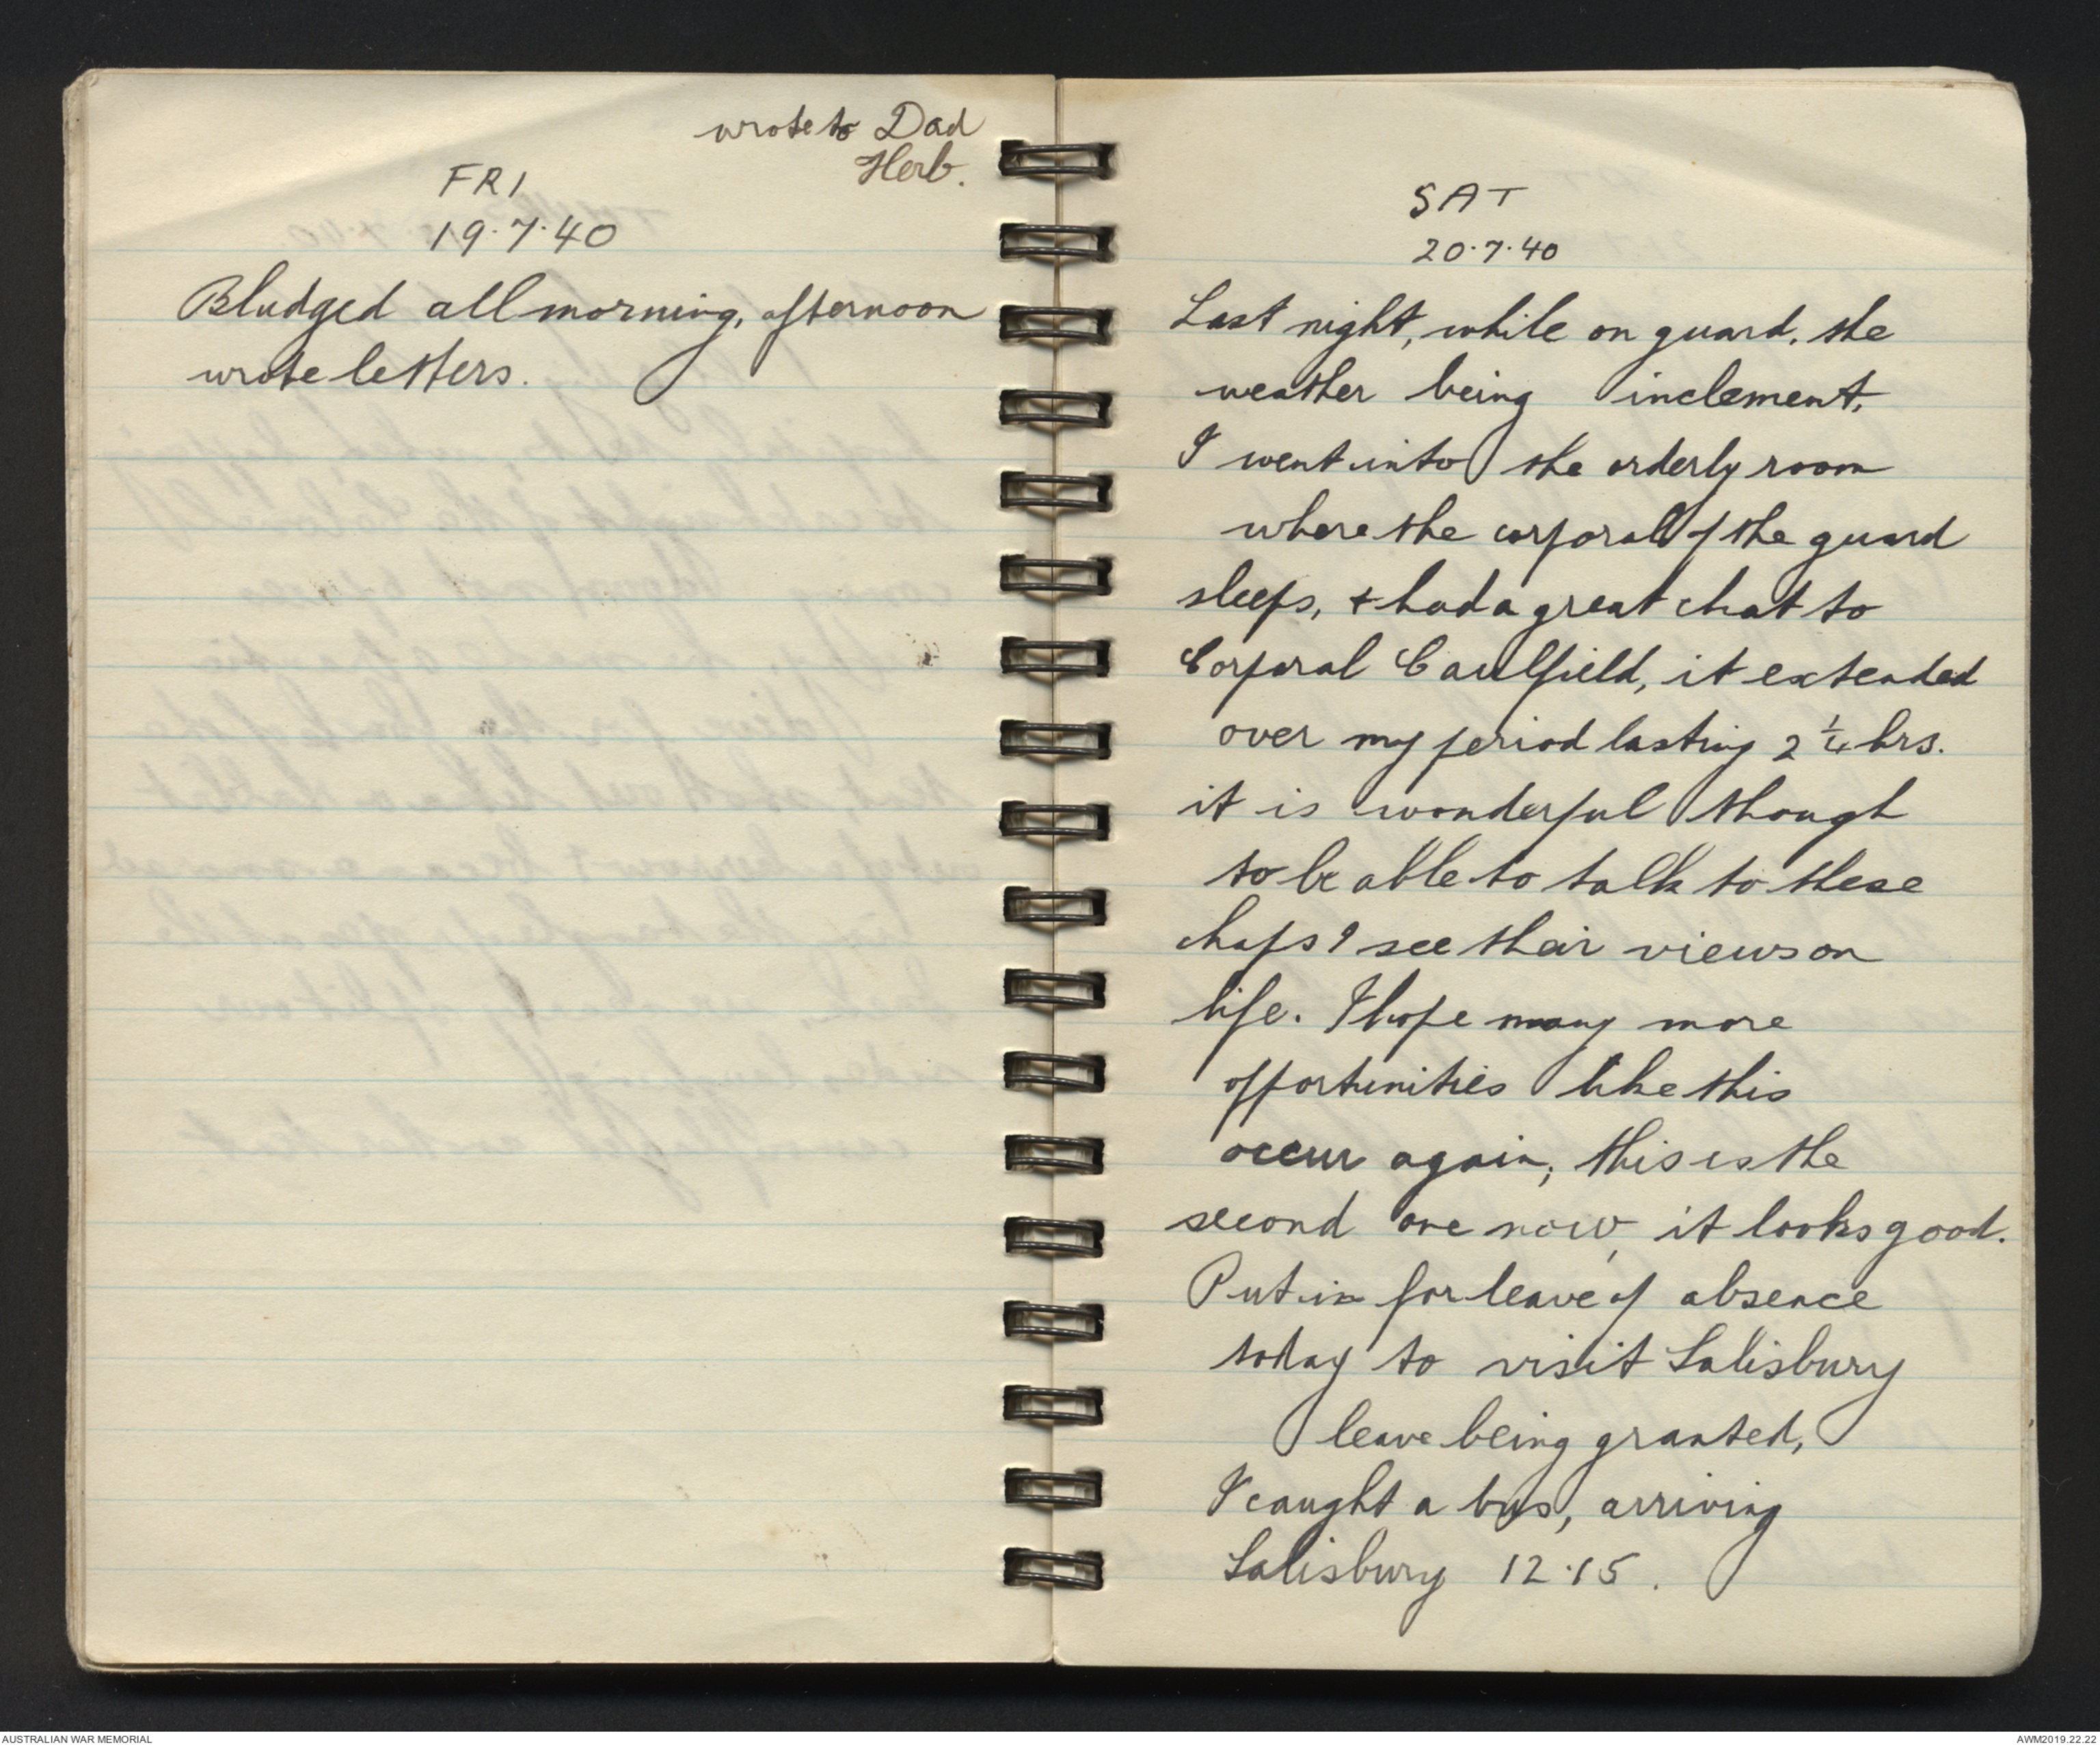 wrote to Dad
Herb.
FRI
19.7.40
Bludged all morning, afternoon
wrote letters.
SAT
20.7.40
Last night, while on guard, the
weather being inclement,
I went into the orderly room
where the corporal of the guard
sleeps, + had a great chat to
Corporal Caulfield, it extended
over my period lasting 2 1/4 hrs.
it is wonderful though
to be able to talk to these
chaps & see their views on
life. I hope many more
opportunities like this
occur again, this is the
second one now, it looks good.
Put in for leave of absence
today to visit Salisbury
leave being granted,
I caught a bus, arriving
Salisbury 12.15.
AUSTRALIAN WAR MEMORIAL
AWM2019.22.22